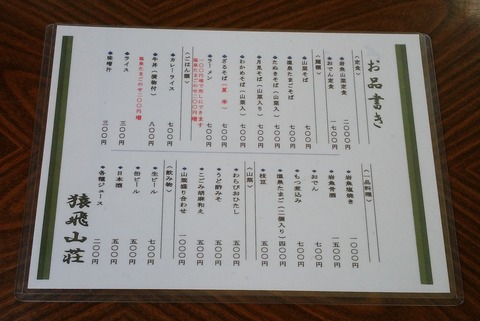 お品書き
(定食)
◆岩魚山菜定食 二〇〇〇円
◆おでん定食 一〇〇円
(麺類)
◆山菜そば 七〇〇円
◆温泉たまごそば 七〇〇円
◆たぬきそば(山菜入) 七〇〇円
◆月見そば(山菜入り) 七〇〇円
◆わかめそば(山菜入) 七〇〇円
◆ざるそば(夏季) 七〇〇円
◆ラーメン 七〇〇円
一〇〇円増で大盛にできます
(ごはん類)
◆カレーライス 七〇〇円
◆牛丼(漬物付) 八〇〇円
温泉たまごのせ二〇〇円増
◆ライス 三〇〇円
◆味噌汁 三〇〇円
(一品料理)
◆岩魚塩焼き 一〇〇〇円
◆岩魚骨酒 一五〇〇円
◆おでん 七〇〇円
◆もつ煮込み 七〇〇円
◆温泉たまご(二個入り) 四〇〇円
◆枝豆 五〇〇円
(山菜)
◆わらびおひたし 五〇〇円
◆うど酢みそ 五〇〇円
◆こごみ胡麻和え 五〇〇円
◆山菜盛り合わせ 一〇〇〇円
(飲み物)
◆生ビール 七〇〇円
◆缶ビール 五〇〇円
◆日本酒 五〇〇円
◆各種ジュース 二〇〇円
猿飛山荘